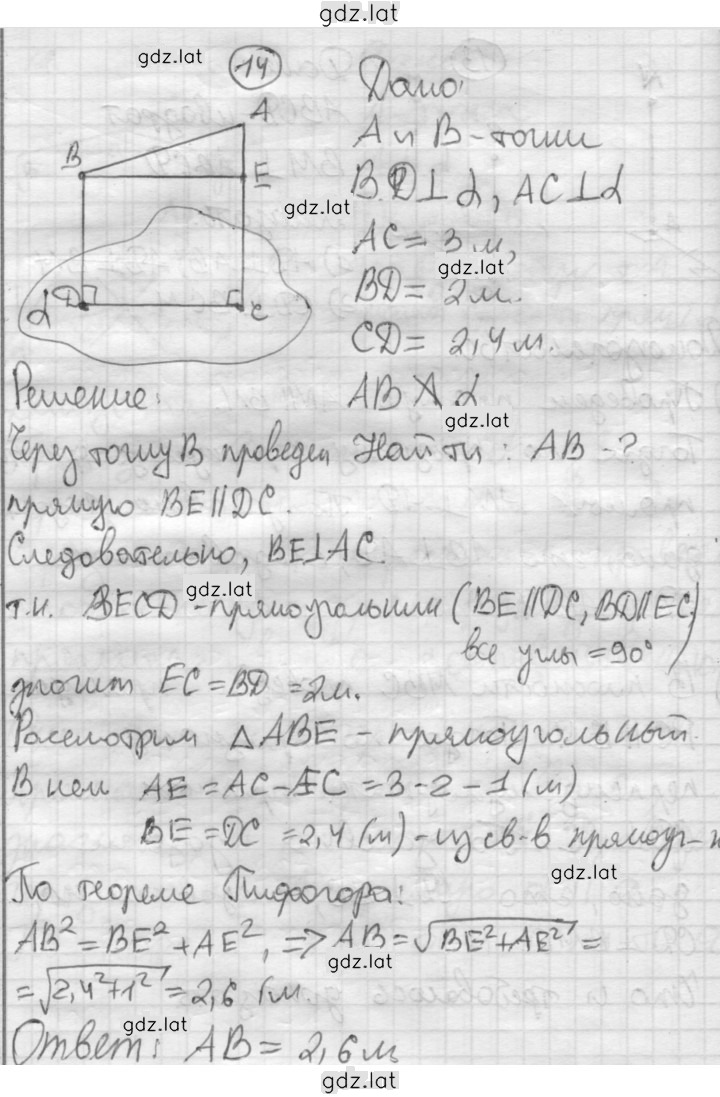 gdz.lat
gdz.lat
14
Дано:
A
B
E
D
C
α
A и B - точки
BD⊥α, AC⊥α
gdz.lat
AC = 3 м,
gdz.lat
BD = 2 м.
CD = 2,4 м.
AB ∦ α
gdz.lat
Найти: AB - ?
Решение:
Через точку B проведем
прямую BE∥DC.
Следовательно, BE⊥AC.
gdz.lat
т.к. BECD - прямоугольник (BE∥DC, BD∥EC,
все углы = 90°)
значит EC = BD = 2м.
Рассмотрим △ABE - прямоугольный.
В нем AE = AC - EC = 3 - 2 - 1 (м)
BE = DC = 2,4 (м) - из св-в прямоуг-
gdz.lat
По теореме Пифагора:
AB² = BE² + AE², => AB = √BE²+AE² =
gdz.lat
= √2,4²+1² = 2,6 (м
gdz.lat
Ответ: AB = 2,6 м
gdz.lat